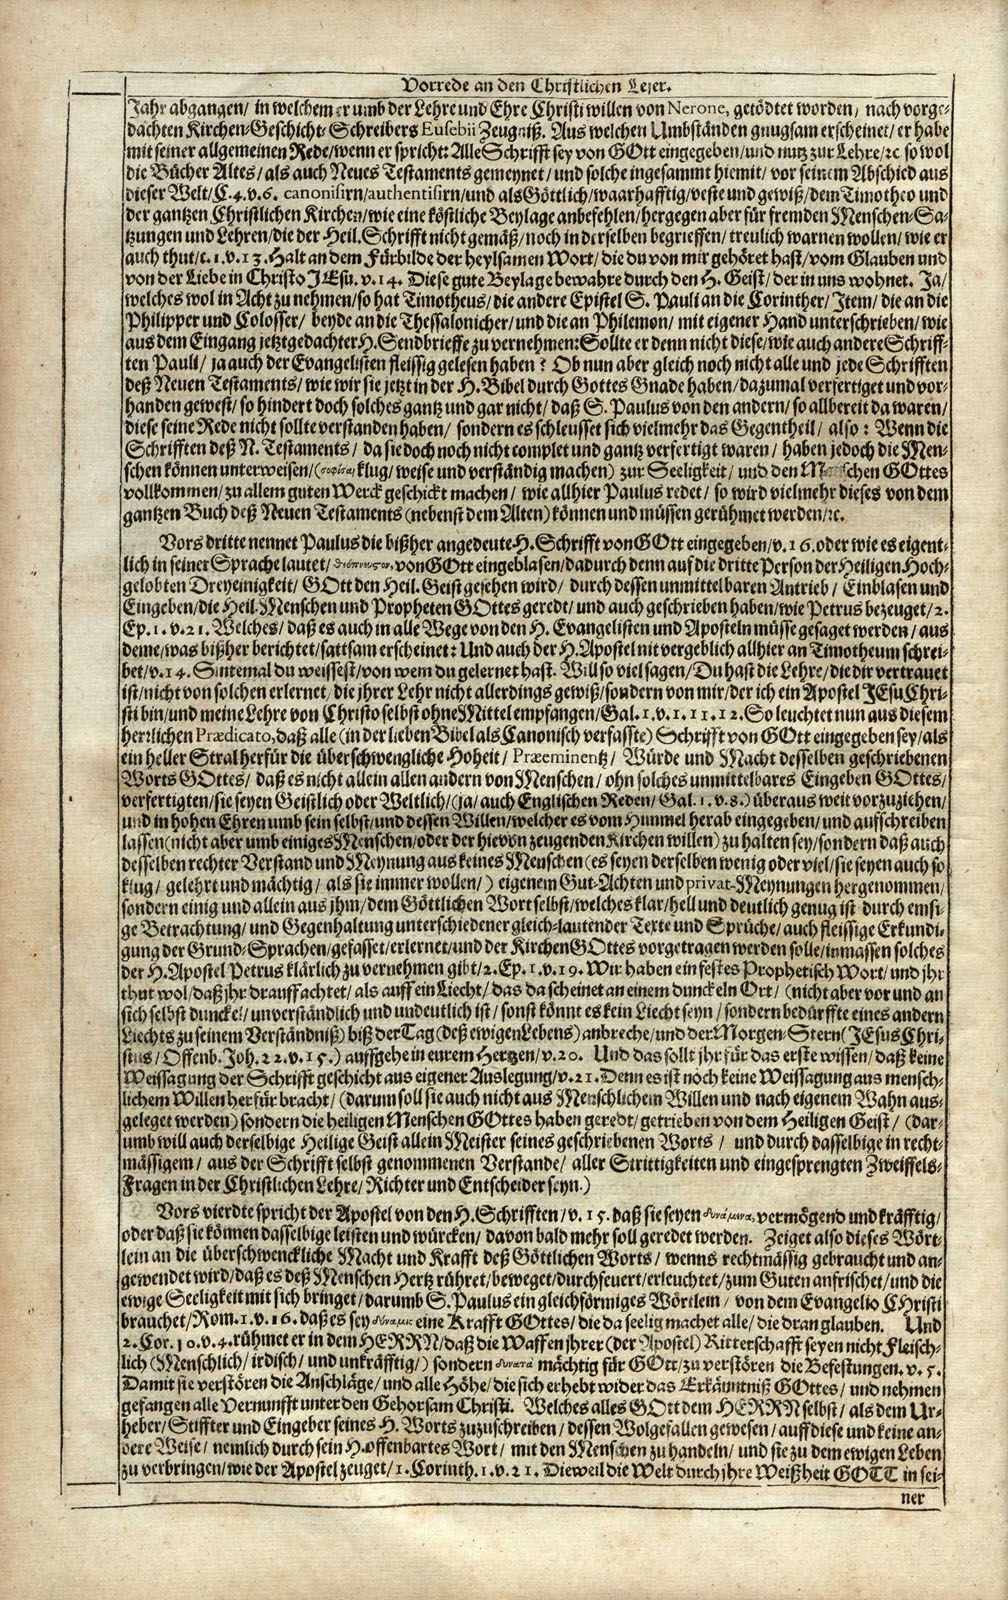 Vorrede an den Christlichen Leser.
Jahr abgangen/ in welchem er umb der Lehre und Ehre Christi willen von Nerone, getödtet worden/ nach vorge-
dachten Kirchen-Geschicht-Schreibers Eusebii Zeugniß. Aus welchen Umbständen gnugsam erscheinet/ er habe
mit seiner allgemeinen Rede/ wenn er spricht: Alle Schrifft sey von GOtt eingegeben/ und nutz zur Lehre/ ꝛc. so wol
die Bücher Altes/ als auch Neues Testaments gemeynet/ und solche ingesammt hiemit/ vor seinem Abschied aus
dieser Welt/ C. 4. v. 6. canonisirn/ authentisirn/ und als Göttlich/ waarhafftig/ veste und gewiß/ dem Timotheo und
der gantzen Christlichen Kirchen/ wie eine köstliche Beylage anbefehlen/ hergegen aber für fremden Menschen-Sa-
tzungen und Lehren/ die der Heil. Schrifft nicht gemäß/ noch in derselben begrieffen/ treulich warnen wollen/ wie er
auch thut/ c. 1. v. 13. Halt an dem Fürbilde der heylsamen Wort/ die du von mir gehöret hast/ vom Glauben und
von der Liebe in Christo JEsu. v. 14. Diese gute Beylage bewahre durch den H. Geist/ der in uns wohnet. Ja/
welches wol in Acht zu nehmen/ so hat Timotheus/ die andere Epistel S. Pauli an die Corinther/ Item/ die an die
Philipper und Colosser/ beyde an die Thessalonicher/ und die an Philemon/ mit eigener Hand unterschrieben/ wie
aus dem Eingang jetztgedachter H. Sendbrieffe zu vernehmen: Sollte er denn nicht diese/ wie auch andere Schriff-
ten Pauli/ ja auch der Evangelisten fleissig gelesen haben? Ob nun aber gleich noch nicht alle und jede Schrifften
deß Neuen Testaments/ wie wir sie jetzt in der H. Bibel durch Gottes Gnade haben/ dazumal verfertiget und vor-
handen gewest/ so hindert doch solches gantz und gar nicht/ daß S. Paulus von den andern/ so allbereit da waren/
diese seine Rede nicht sollte verstanden haben/ sondern es schleusset sich vielmehr das Gegentheil/ also: Wenn die
Schrifften deß N. Testaments/ da sie doch noch nicht complet und gantz verfertigt waren/ haben jedoch die Men-
schen können unterweisen/ (σοφίσαι klug/ weise und verständig machen) zur Seeligkeit/ und den Menschen GOttes
vollkommen/ zu allem guten Werck geschickt machen/ wie allhier Paulus redet/ so wird vielmehr dieses von dem
gantzen Buch deß Neuen Testaments (nebenst dem Alten) können und müssen gerühmet werden/ ꝛc.
Vors dritte nennet Paulus die bißher angedeute H. Schrifft von GOtt eingegeben/ v. 16. oder wie es eigent-
lich in seiner Sprache lautet/ θεόπνευστον, von GOtt eingeblasen/ dadurch denn auf die dritte Person der Heiligen Hoch-
gelobten Dreyeinigkeit/ GOtt den Heil. Geist gesehen wird/ durch dessen unmittelbaren Antrieb/ Einblasen und
Eingeben/ die Heil. Menschen und Propheten GOttes geredt/ und auch geschrieben haben/ wie Petrus bezeuget/ 2.
Ep. 1. v. 21. Welches/ daß es auch in alle Wege von den H. Evangelisten und Aposteln müsse gesaget werden/ aus
deme/ was bißher berichtet/ sattsam erscheinet: Und auch der H. Apostel nit vergeblich allhier an Timotheum schrei-
bet/ v. 14. Sintemal du weissest/ von wem du gelernet hast. Will so viel sagen/ Du hast die Lehre/ die dir vertrauet
ist/ nicht von solchen erlernet/ die jhrer Lehr nicht allerdings gewiß/ sondern von mir/ der ich ein Apostel JEsu Chri-
sti bin/ und meine Lehre von Christo selbst ohne Mittel empfangen/ Gal. 1. v. 1. 11. 12. So leuchtet nun aus diesem
herrlichen Prædicato, daß alle (in der lieben Bibel als Canonisch verfasste) Schrifft von GOtt eingegeben sey/ als
ein heller Stral herfür die überschwengliche Hoheit/ Præeminentz/ Würde und Macht desselben geschriebenen
Worts GOttes/ daß es nicht allein allen andern von Menschen/ ohn solches unmittelbares Eingeben GOttes/
verfertigten/ sie seyen Geistlich oder Weltlich/ (ja/ auch Englischen Reden/ Gal. 1. v. 8.) überaus weit vorzuziehen/
und in hohen Ehren umb sein selbst/ und dessen Willen/ welcher es vom Himmel herab eingegeben/ und aufschreiben
lassen (nicht aber umb einiges Menschen/ oder der hievon zeugenden Kirchen willen) zu halten sey/ sondern daß auch
desselben rechter Verstand und Meynung aus keines Menschen (es seyen derselben wenig oder viel/ sie seyen auch so
klug/ gelehrt und mächtig/ als sie immer wollen/) eigenem Gut-Achten und privat-Meynungen hergenommen/
sondern einig und allein aus jhm/ dem Göttlichen Wort selbst/ welches klar/ hell und deutlich genug ist durch emsi-
ge Betrachtung/ und Gegenhaltung unterschiedener gleich-lautender Texte und Sprüche/ auch fleissige Erkundi-
gung der Grund-Sprachen/ gefasset/ erlernet/ und der Kirchen GOttes vorgetragen werden solle/ inmassen solches
der H. Apostel Petrus klärlich zu vernehmen gibt/ 2. Ep. 1. v. 19. Wir haben ein festes Prophetisch Wort/ und jhr
thut wol/ daß jhr drauff achtet/ als auff ein Liecht/ das da scheinet an einem dunckeln Ort/ (nicht aber vor und an
sich selbst dunckel/ unverständlich und undeutlich ist/ sonst könnt es kein Liecht seyn/ sondern bedürffte eines andern
Liechts zu seinem Verständniß) biß der Tag (deß ewigen Lebens) anbreche/ und der Morgen-Stern (JEsus Chri-
stus/ Offenb. Joh. 22. v. 15.) auffgehe in eurem Hertzen/ v. 20. Und das sollt jhr für das erste wissen/ daß keine
Weissagung der Schrifft geschicht aus eigener Auslegung/ v. 21. Denn es ist noch keine Weissagung aus mensch-
lichem Willen herfür bracht/ (darum soll sie auch nicht aus Menschlichem Willen und nach eigenem Wahn aus-
geleget werden) sondern die heiligen Menschen GOttes haben geredt/ getrieben von dem Heiligen Geist/ (dar-
umb will auch derselbige Heilige Geist allein Meister seines geschriebenen Worts/ und durch dasselbige in recht-
mässigem/ aus der Schrifft selbst genommenen Verstande/ aller Strittigkeiten und eingesprengten Zweiffels-
Fragen in der Christlichen Lehre/ Richter und Entscheider seyn.)
Vors vierdte spricht der Apostel von den H. Schrifften/ v. 15. daß sie seyen δυνάμενα, vermögend und kräfftig/
oder daß sie können dasselbige leisten und würcken/ davon bald mehr soll geredet werden. Zeiget also dieses Wört-
lein an die überschwenckliche Macht und Krafft deß Göttlichen Worts/ wenns rechtmässig gebraucht und an-
gewendet wird/ daß es deß Menschen Hertz rühret/ beweget/ durchfeuert/ erleuchtet/ zum Guten anfrischet/ und die
ewige Seeligkeit mit sich bringet/ darumb S. Paulus ein gleichförmiges Wörtlein/ von dem Evangelio CHristi
brauchet/ Rom. 1. v. 16. daß es sey δύναμις eine Krafft GOttes/ die da seelig machet alle/ die dran glauben. Und
2. Cor. 10. v. 4. rühmet er in dem HERRN/ daß die Waffen jhrer (der Apostel) Ritterschafft seyen nicht Fleisch-
lich (Menschlich/ irdisch/ und unkräfftig/) sondern δυνατὰ mächtig für GOtt/ zu verstören die Befestungen. v. 5.
Damit sie verstören die Anschläge/ und alle Höhe/ die sich erhebt wider das Erkänntniß GOttes/ und nehmen
gefangen alle Vernunfft unter den Gehorsam Christi. Welches alles GOtt dem HERRN selbst/ als dem Ur-
heber/ Stiffter und Eingeber seines H. Worts zuzuschreiben/ dessen Wolgefallen gewesen/ auff diese und keine an-
dere Weise/ nemlich durch sein H. offenbartes Wort/ mit den Menschen zu handeln/ und sie zu dem ewigen Leben
zu verbringen/ wie der Apostel zeuget/ 1. Corinth. 1. v. 21. Dieweil die Welt durch jhre Weißheit GOTT in sei-
ner